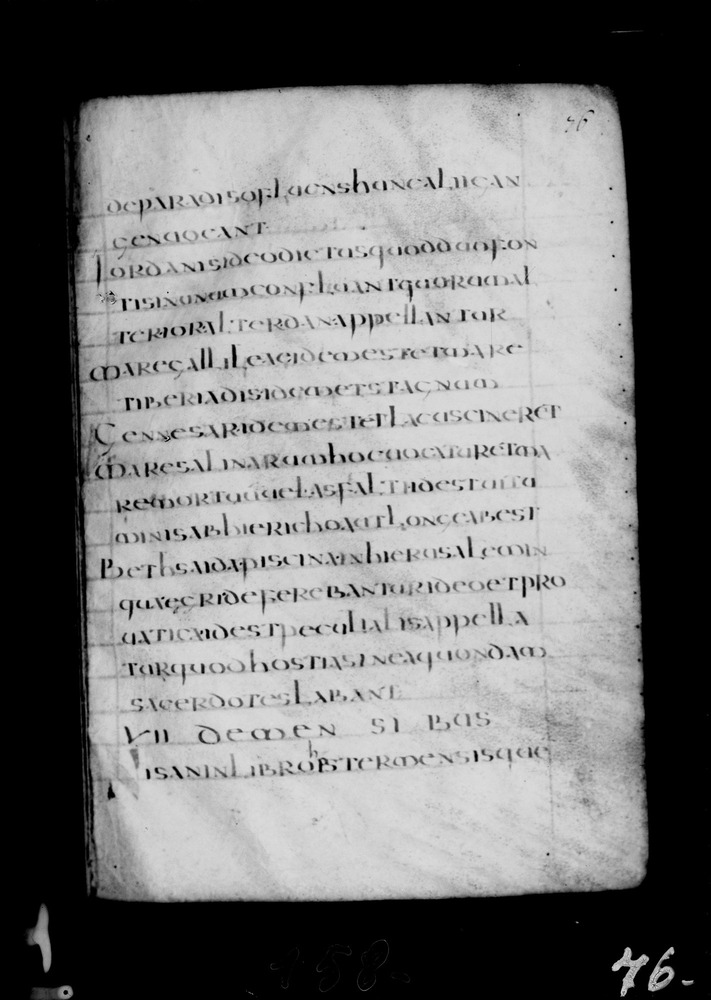 76
deparadisofluenshuncaliigan
genuocant
Iordanisideodictusquodduofon
tisinunumconfluantquorumal
terioralterdanappellantur
maregallileaeidemestetmare
tiberiadisidemetstagnum
Gennesaridemestetlacuscineret
maresalinarumhocuocaturetma
remortuuuelasfaltiidestuitu
minisabhierichoautlongeabest
Bethsaidapiscinainhierusalemin
quaegrideferebanturideoetpro
uaticaidestpeculialisappella
turquodhostiasineaquondam
sacerdoteslabant
VII demen si bus
Nisaninlibrohestermensisque
158-
76-